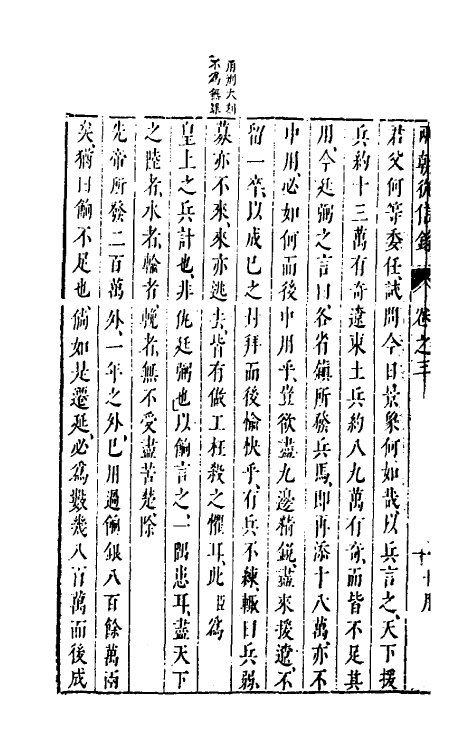 兩朝從信錄 卷之三
君父何等委任試問今日景象何如哉以兵言之天下援
兵約十三萬有奇遼東土兵約八九萬有奇而皆不足其
用今廷弼之言曰各省鎮所發兵馬即再添十八萬亦不
中用必如何而後中用乎豈欲盡九邊精銳盡來援遼不
留一卒以成巳之封拜而後愉快乎有兵不練輙曰兵弱
募亦不來來亦逃去皆有做工枉殺之懼耳此臣爲
皇上之兵計也非仇廷弼也以餉言之一隅患耳盡天下
之陸者水者輸者輓者無不受盡苦楚除
先帝所發二百萬外一年之外巳用過餉銀八百餘萬兩
矣猶曰餉不足也倘如是遷延必爲數幾八百萬而後成
用刑大刻
不爲無罪